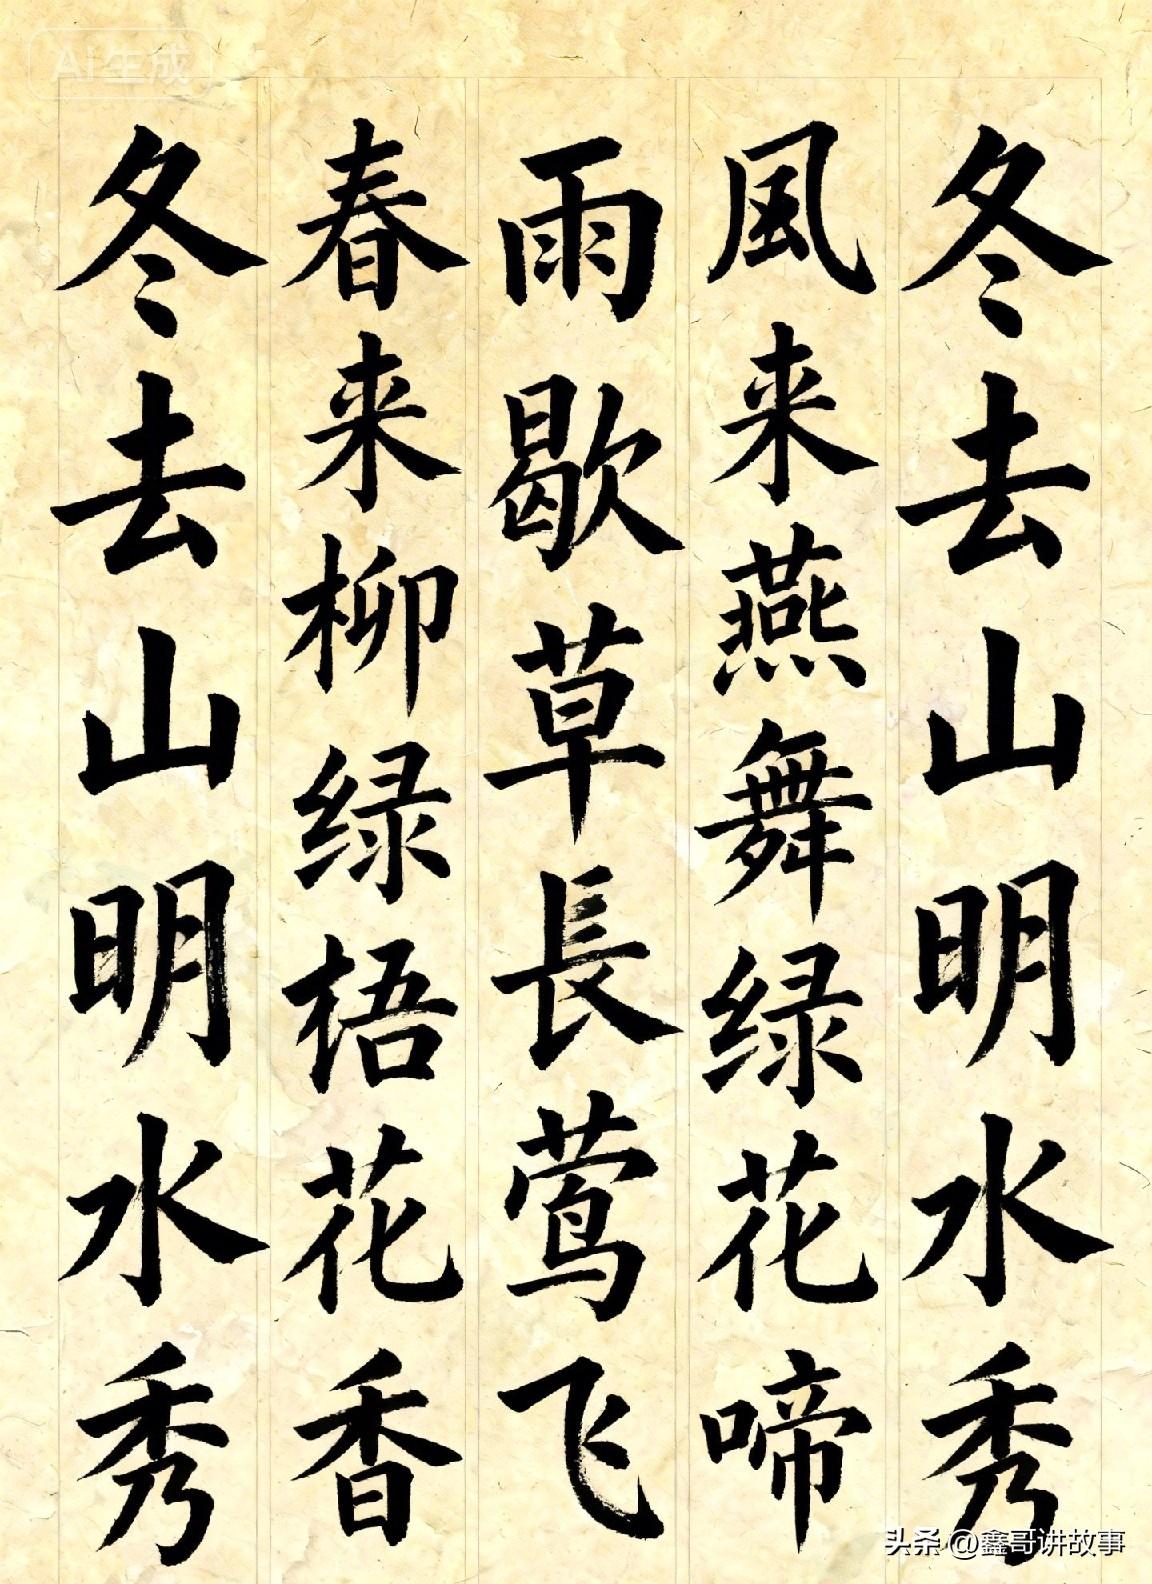 AI生成
冬去山明水秀
風来燕舞绿花啼
雨歇草長莺飞
春来柳绿梧花香
冬去山明水秀
头条 @鑫哥讲故事